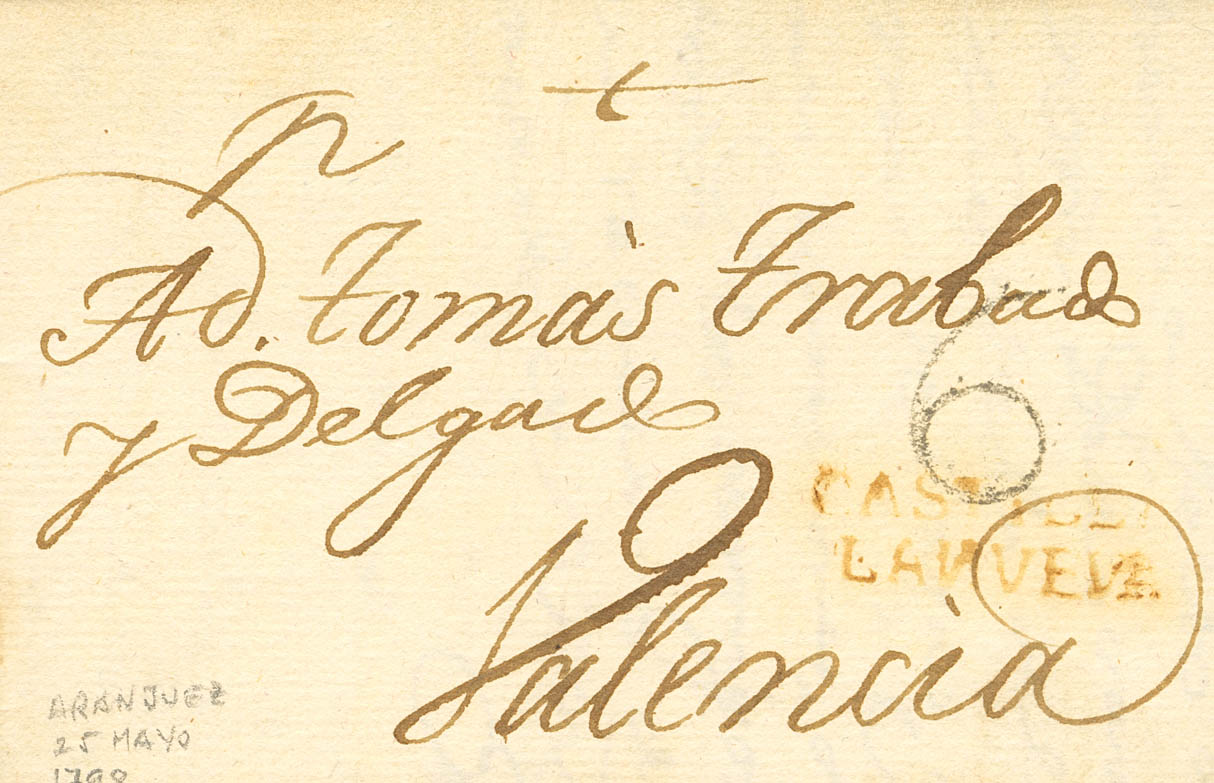 Ad. Tomàs Trabado
y Delgado
6
CASTILLA
LANUEVA
Valencia
ARANJUEZ
25 MAYO
1798